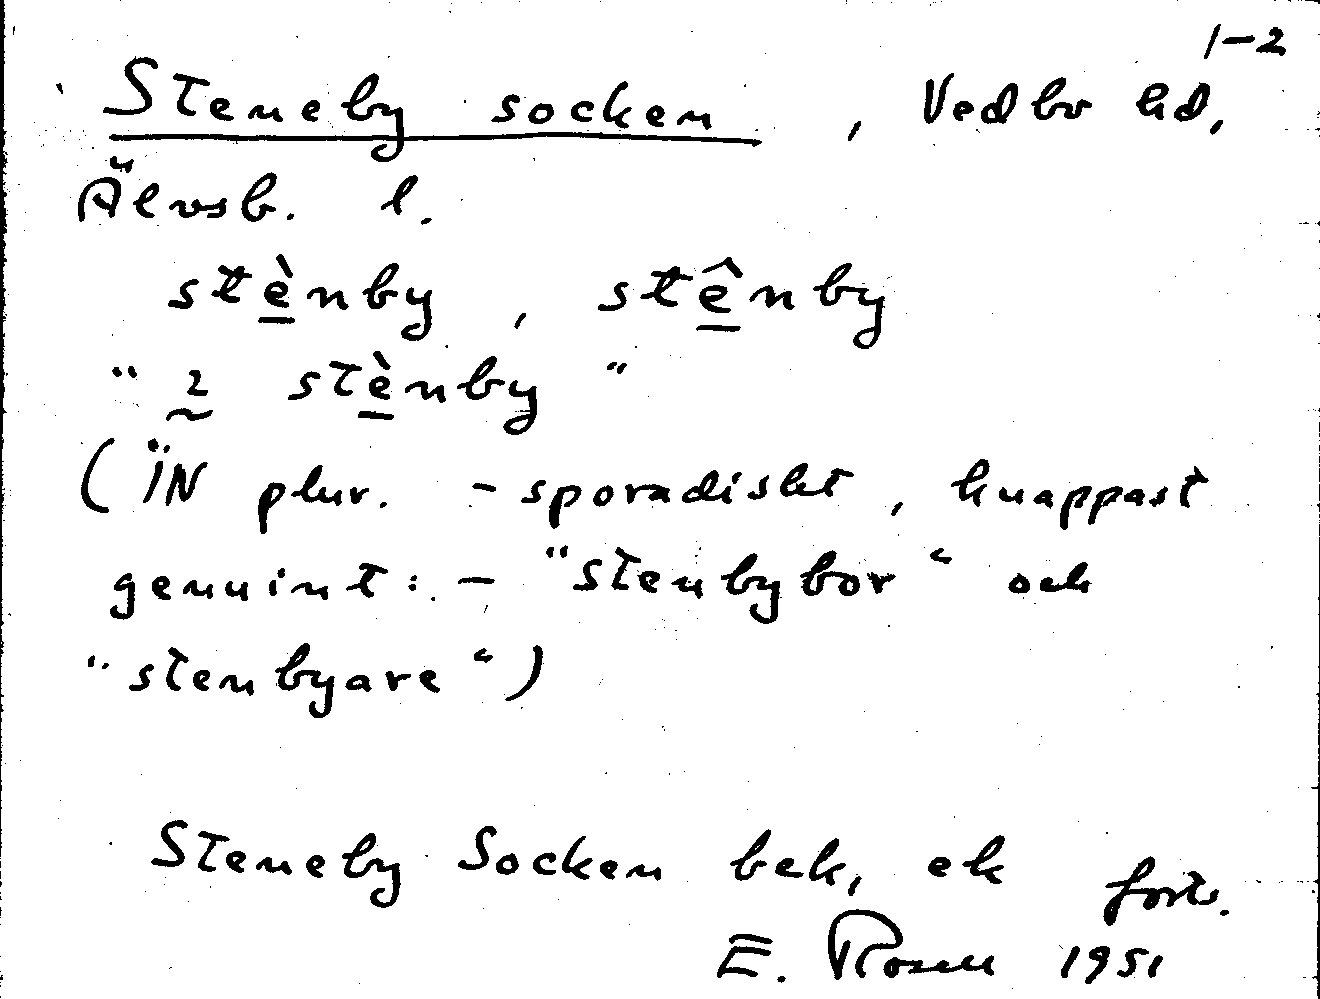 1-2
Steneby socken, Vedbo hd,
Älvsb. l.
stènby, stênby
" 2 stènby "
(IN plur. - sporadiskt, knappast
genuint: - "stenbybor" och
"stenbyare")
Steneby Socken bek, ek forts.
E. Rosell 1951